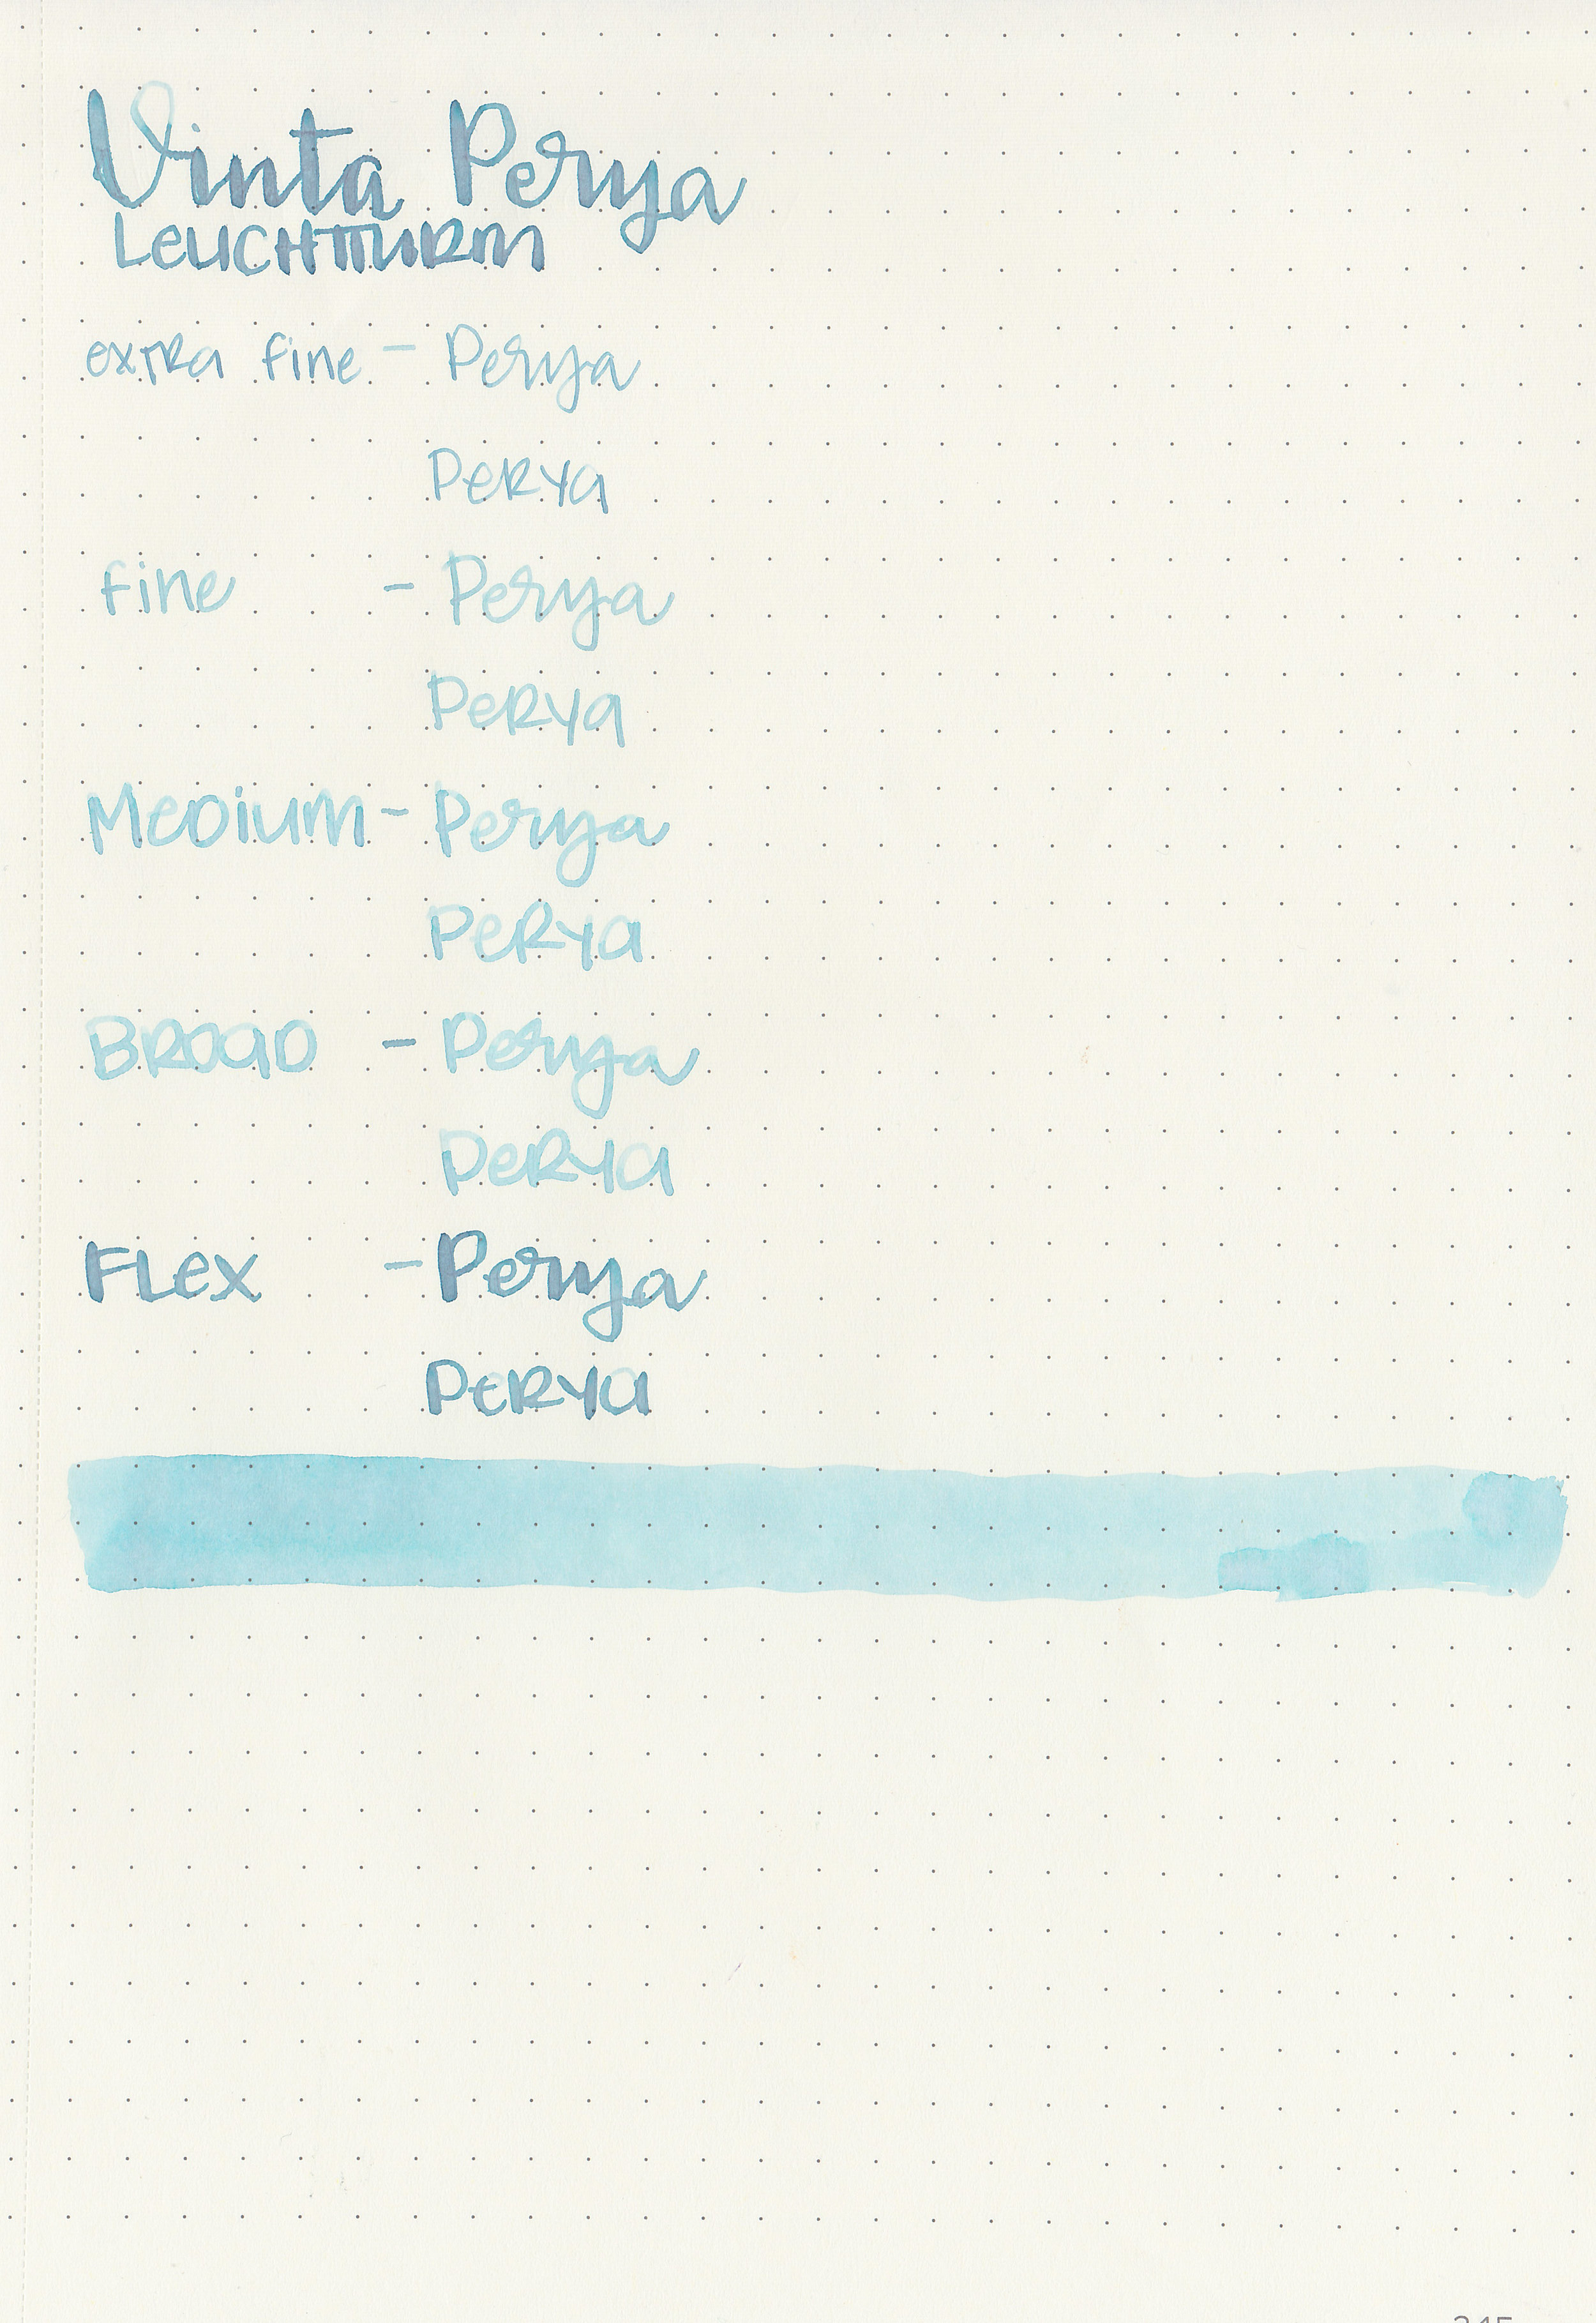 Vinta Perya
LEUCHTTURM
extra fine - Perya
PeRya
fine - Perya
PeRya
MeDium - Perya
PeRya
BROAD - Perya
PeRya
FLex - Perya
PeRYa